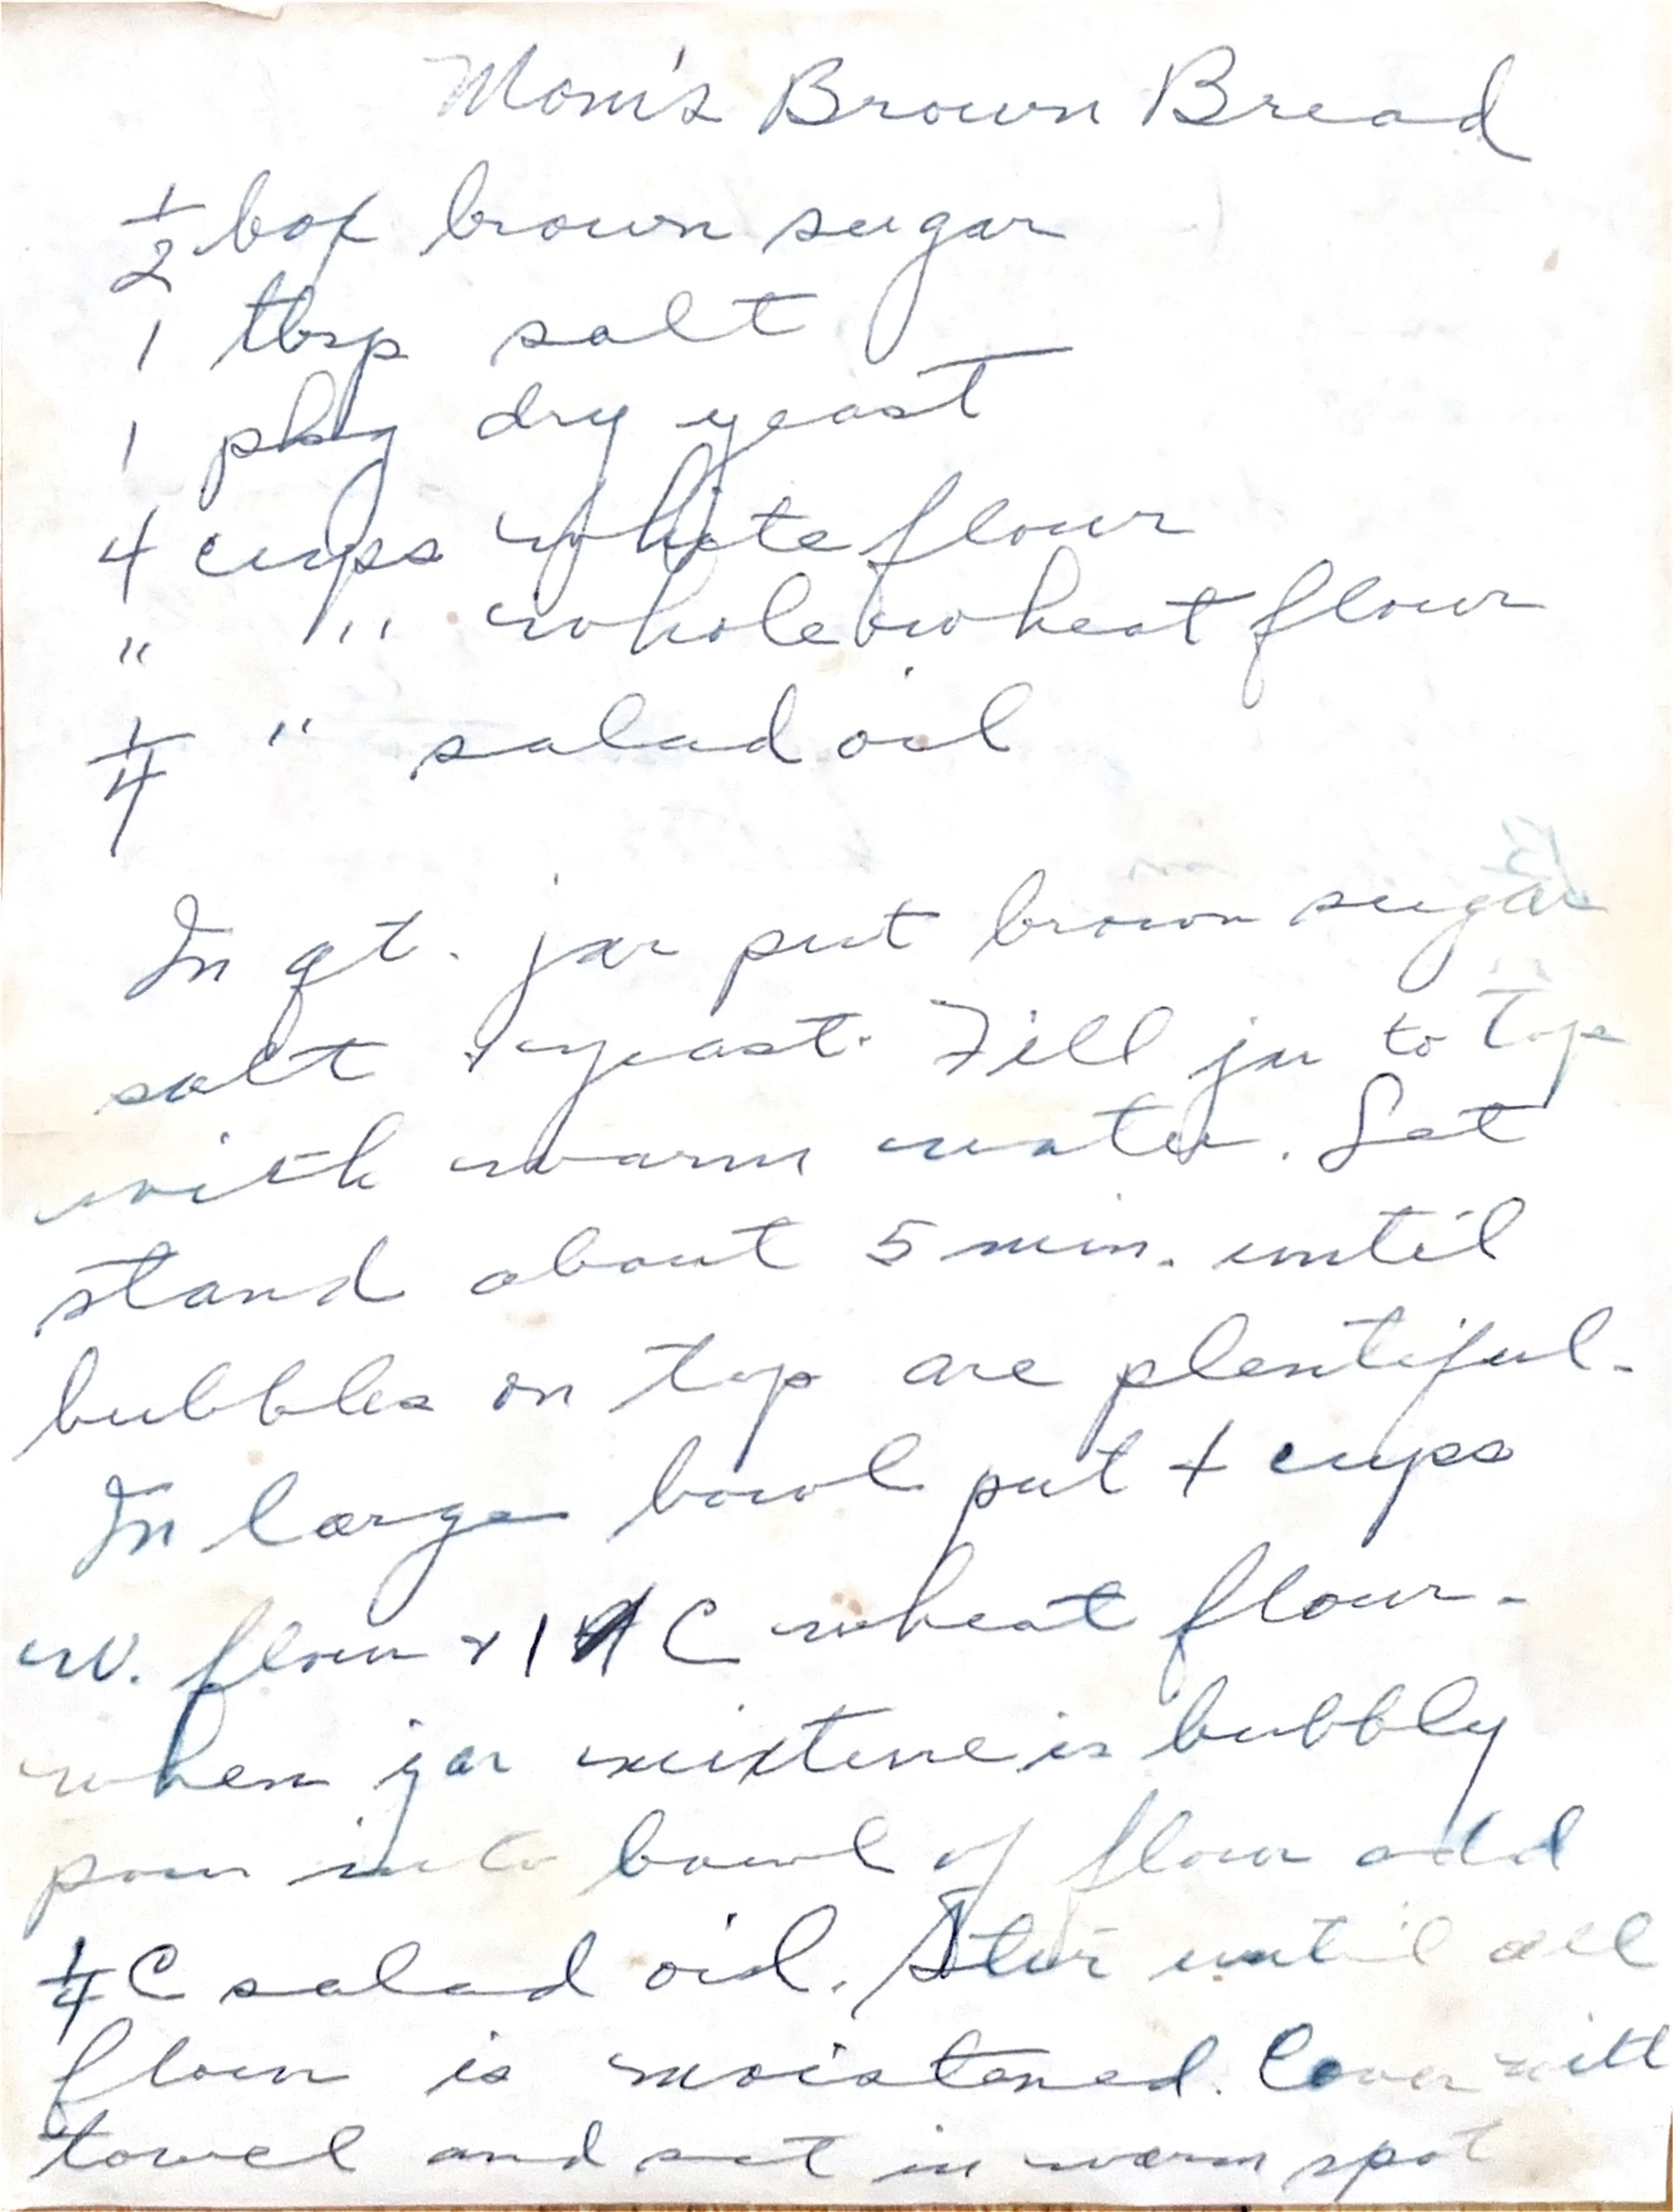 Mom's Brown Bread
1/2 box brown sugar
1 tbsp salt
1 pkg dry yeast
4 cups white flour
" " whole wheat flour
1/4 " salad oil
In qt. jar put brown sugar
salt & yeast. Fill jar to top
with warm water. Let
stand about 5 min. until
bubbles on top are plentiful.
In large bowl put 4 cups
w. flour & 1 C wheat flour.
when jar mixture is bubbly
pour into bowl of flour add
1/4 C salad oil. Stir until all
flour is moistened. Cover with
towel and set in warm spot